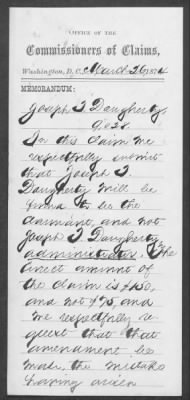 OFFICE OF THE
Commissioners of Claims,
Washington, D. C., March 26, 1874
MEMORANDUM:
Joseph T Daugherty,
In this claim we
respectfully submit
that Joseph T.
Daugherty will be
found to be the
claimant, and not
Joseph T. Daugherty
administrator. The
correct amount of
the claim is
and not $75, and
we respectfully re-
quest that that
amendment be
made, the mistake
having arisen